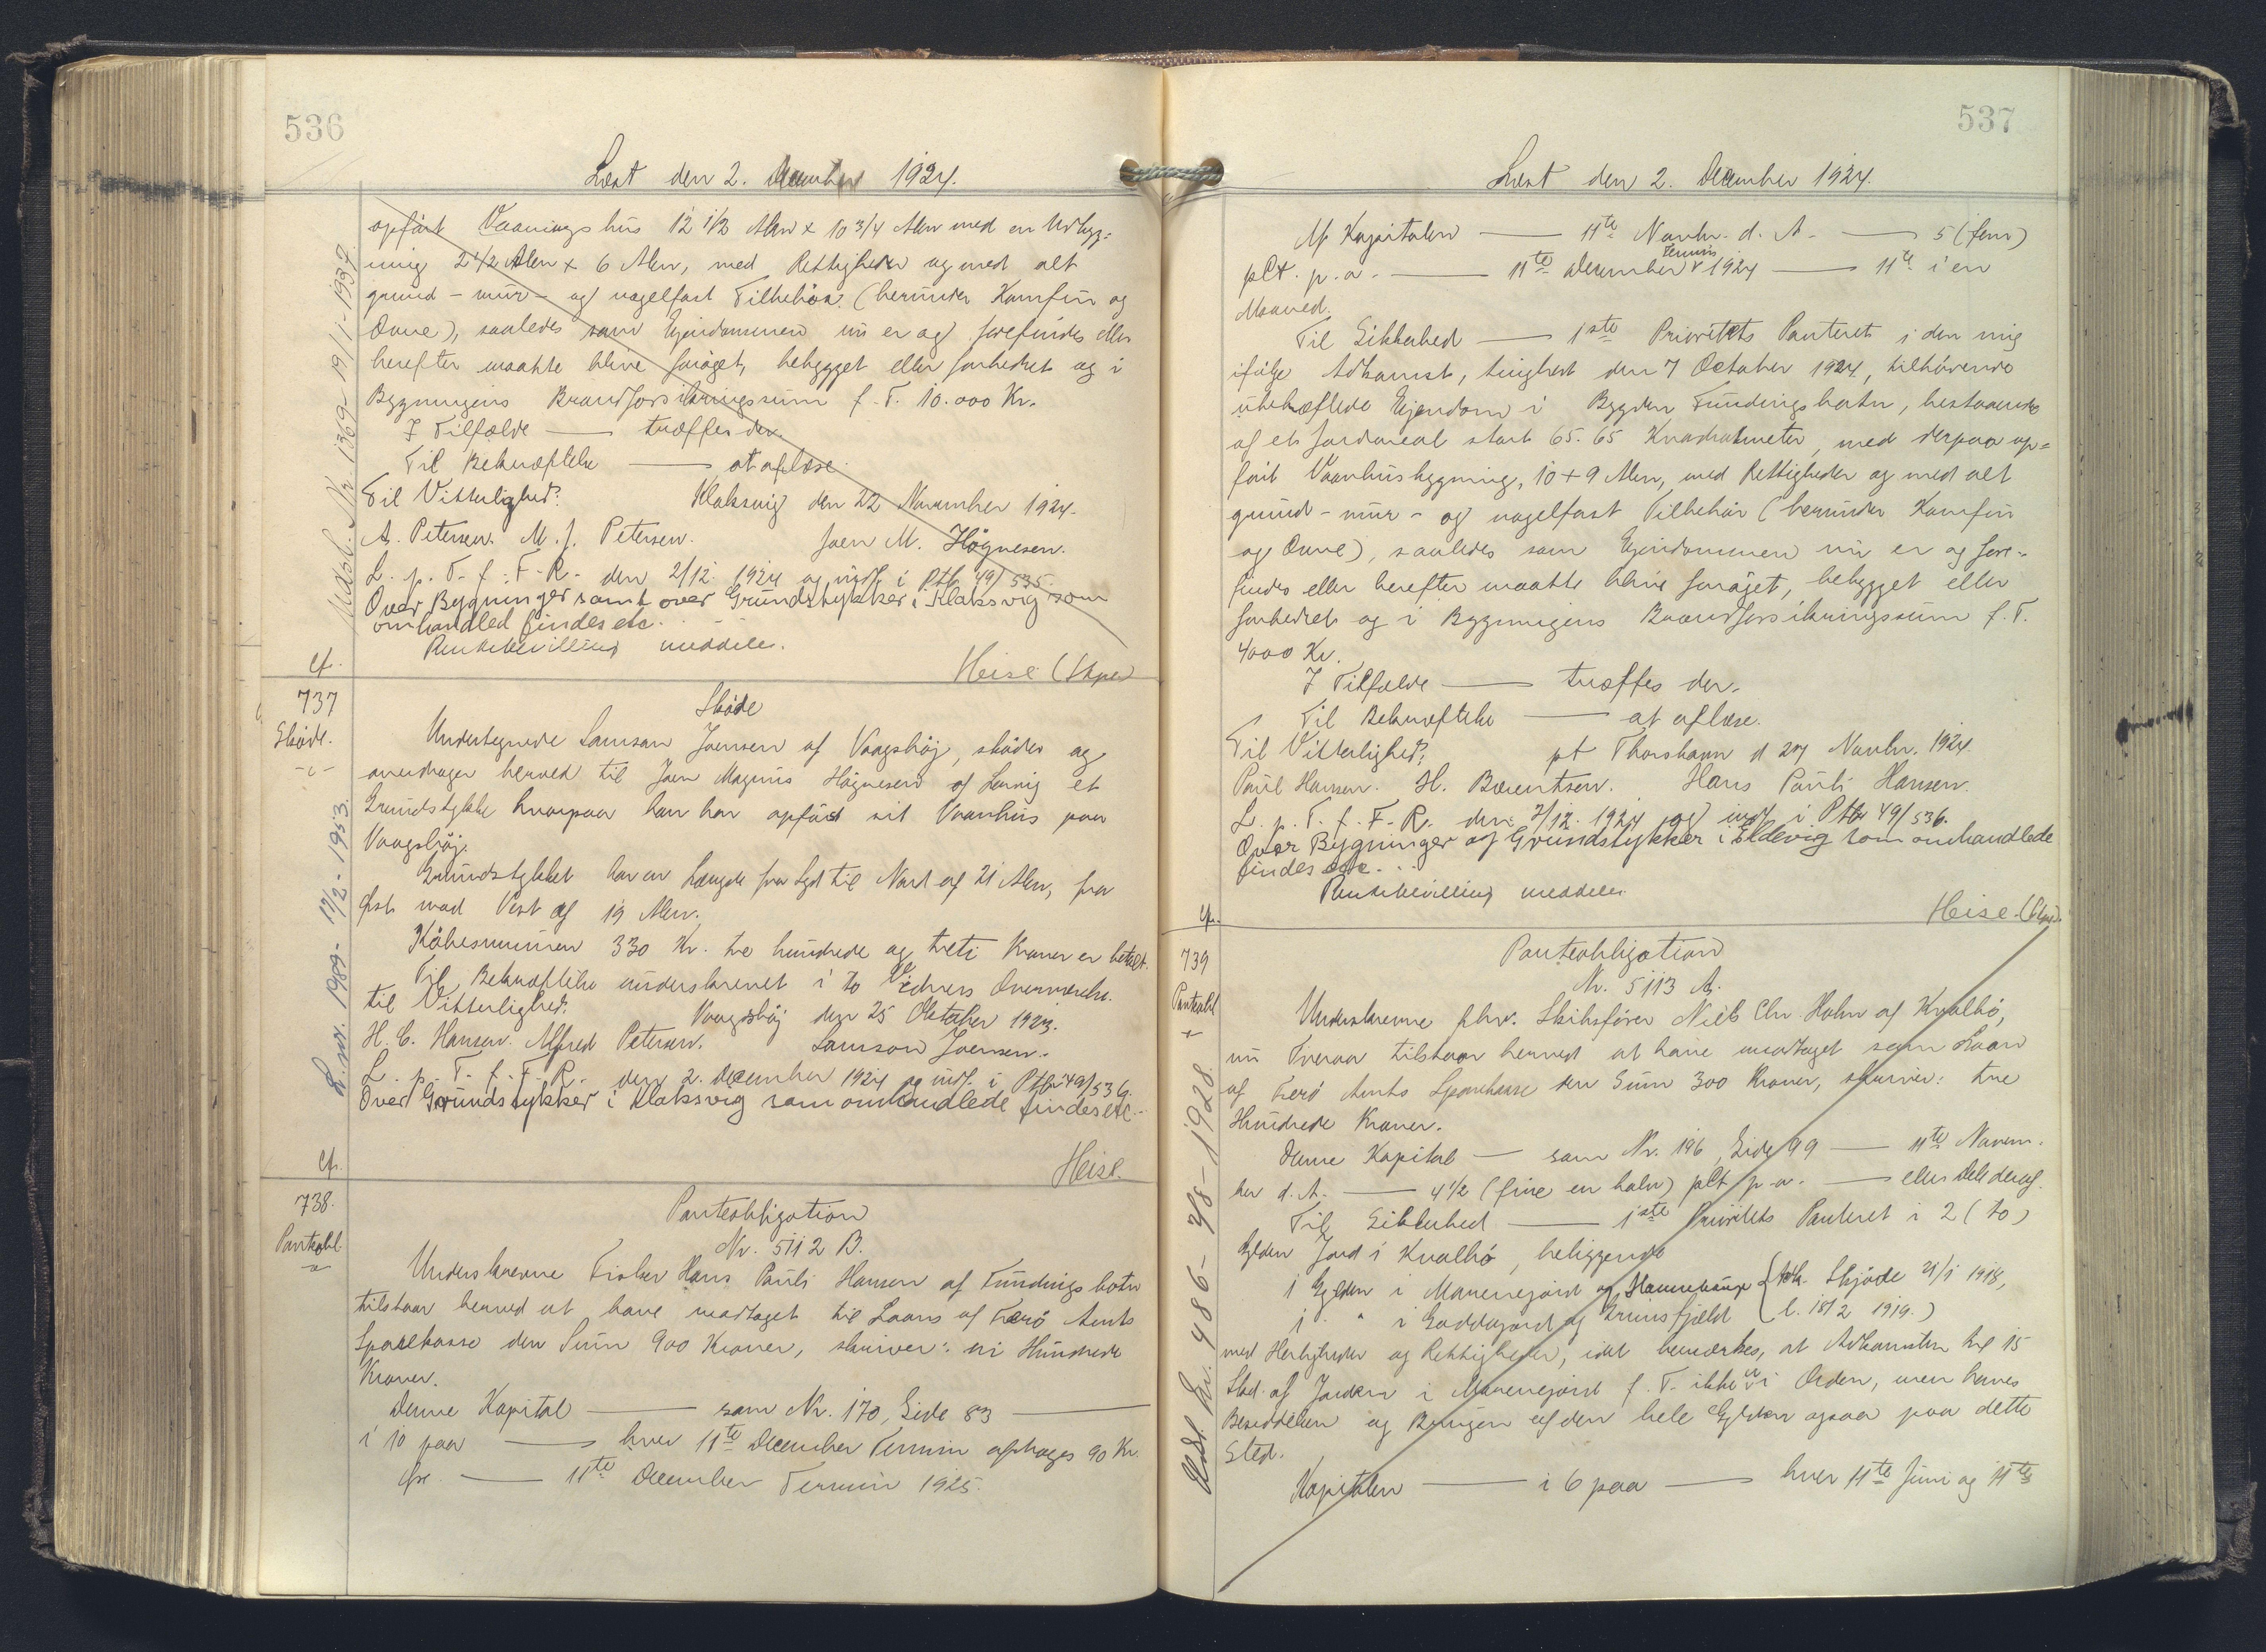 536
Læst den 2. December 1924.
opført Vaaningshus 12 1/2 Alen x 10 3/4 Alen med en Udbyg-
ning 2 1/2 Alen x 6 Alen, med Rettigheder og med alt
grund- mur- og nagelfast Tilbehør (herunder Komfur og
Ovne), saaledes som Ejendommen nu er og forefindes eller
herefter maatte blive forøget, bebygget eller forbedret og i
Bygningens Brandforsikringssum f. T. 10.000 Kr.
I Tilfælde — træffes der.
Til Bekræftelse — at aflæse.
Til Vitterlighed: Klaksvig den 22 November 1924.
A. Petersen. M. J. Petersen. Joen M. Högnesen.
L. p. T. f. F. R. den 2/12 1924 og indf. i Ptb. 49/535.
Over Bygninger samt over Grundstykker i Klaksvig som
omhandled findes etc.
Pantebevilling meddeles.
Heise
Udsl. Nr. 1369- 19/11-1937.
cf.
737
Skøde.
Skøde
Undertegnede Samson Joensen af Vaagshøj, skøder og
overdrager herved til Joen Magnus Högnesen af Lervig et
Grundstykke hvorpaa han har opført sit Vaanhus paa
Vaagshøj.
Grundstykket har en Længde fra Syd til Nord af 21 Alen, fra
Øst mod Vest af 19 Alen.
Købesummen 330 Kr. tre hundrede og treti Kroner er betalt.
Til Bekræftelse underskrevet i to Vidners Overværelse.
til Vitterlighed: Vaagshøj den 25 Oktober 1923.
H. C. Hansen. Alfred Petersen. Samson Joensen.
L. p. T. f. F. R. den 2. December 1924 og indf. i Ptb. 49/536.
Over Grundstykker i Klaksvig som omhandlede findes etc.
Heise.
L. nr. 1989- 17/2-1953.
cf.
738.
Panteobl.
Panteobligation
Nr. 5112 B.
Underskrevne Fisker Hans Pauli Hansen af Fundingsbotn
tilstaar herved at have modtaget til Laans af Færø Amts
Sparekasse den Sum 900 Kroner, skriver: ni Hundrede
Kroner.
Denne Kapital — som Nr. 170, Side 83 —
i 10 paa — hver 11te December Termin afdrages 90 Kr.
Øre. — 11te December Termin 1925.
537
Læst den 2. December 1924.
Af Kapitalen — 11te Novbr. d. A. — 5 (fem)
pCt. p. a. — 11te December Termin 1924 — 11te i en
Maaned.
Til Sikkerhed — 1ste Prioritets Panteret i den mig
ifølge Adkomst, tinglæst den 7 October 1924, tilhørende
ubehæftede Ejendom i Bygden Fundingsbotn, bestaaende
af et Jordareal stort 65.65 Kvadratmeter, med derpaa op-
ført Vaanhusbygning, 10 + 9 Alen, med Rettigheder og med alt
grund- mur- og nagelfast Tilbehør (herunder Komfur
og Ovne), saaledes som Ejendommen nu er og fore-
findes eller herefter maatte blive forøget, bebygget eller
forbedret og i Bygningens Brandforsikringssum f. T.
4000 Kr.
I Tilfælde — træffes der.
Til Bekræftelse — at aflæse.
Til Vitterlighed: pt Thorshavn d 27 Novbr. 1924.
Poul Hansen. H. Bærentsen. Hans Pauli Hansen.
L. p. T. f. F. R. den 2/12. 1924 og indf. i Ptb. 49/536.
Over Bygninger og Grundstykker i Eldevig som omhandlede
findes etc. . .
Panteibevilling meddeles.
Heise.
cf.
739
Panteobl
Panteobligation
Nr. 5113 A.
Underskrevne fhv. Skibsfører Niels Chr. Holm af Kvalbø,
nu Tveraa tilstaar herved at have modtaget som Laan
af Færø Amts Sparekasse den Sum 300 Kroner, skriver: tre
Hundrede Kroner.
Denne Kapital — som Nr. 196, Side 99 — 11te Novem-
ber d. A. — 4 1/2 (fire en halv) pCt p. a. — eller Dele deraf.
Til Sikkerhed — 1ste Prioritets Panteret i 2 (to)
Gylden Jord i Kvalbø, beliggende
1 Gylden i Marrenejord og
1 " i Gaddagaard og
Skjøde 21/1 1918,
l. 18/2 1919.)
med Herligheder og Rettigheder, idet bemærkes, at Adkomsten til 15
Skd. af Jorden i Marrenejord f. T. ikke er i Orden, men haves
Besiddelsen og Brugen af den hele Gylden ogsaa paa dette
Sted.
Kapitalen — i 6 paa — hver 11te Juni og 11te
Udsl. Nr. 486- 4/8-1928.